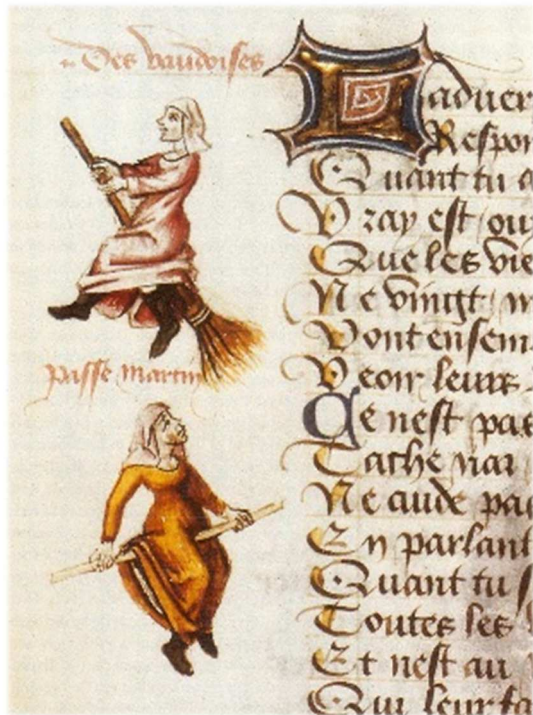 Des vaudoises
passe martin
Laduer
Respon
Quant tu a
Vray est ou
Que les vie
Ne vingt m
Vont ensem
Veoir leurs
Ce nest pas
Tache nai
Ne aude pa
En parlant
Quant tu s
Toutes les
Et nest au
Qui leur fa